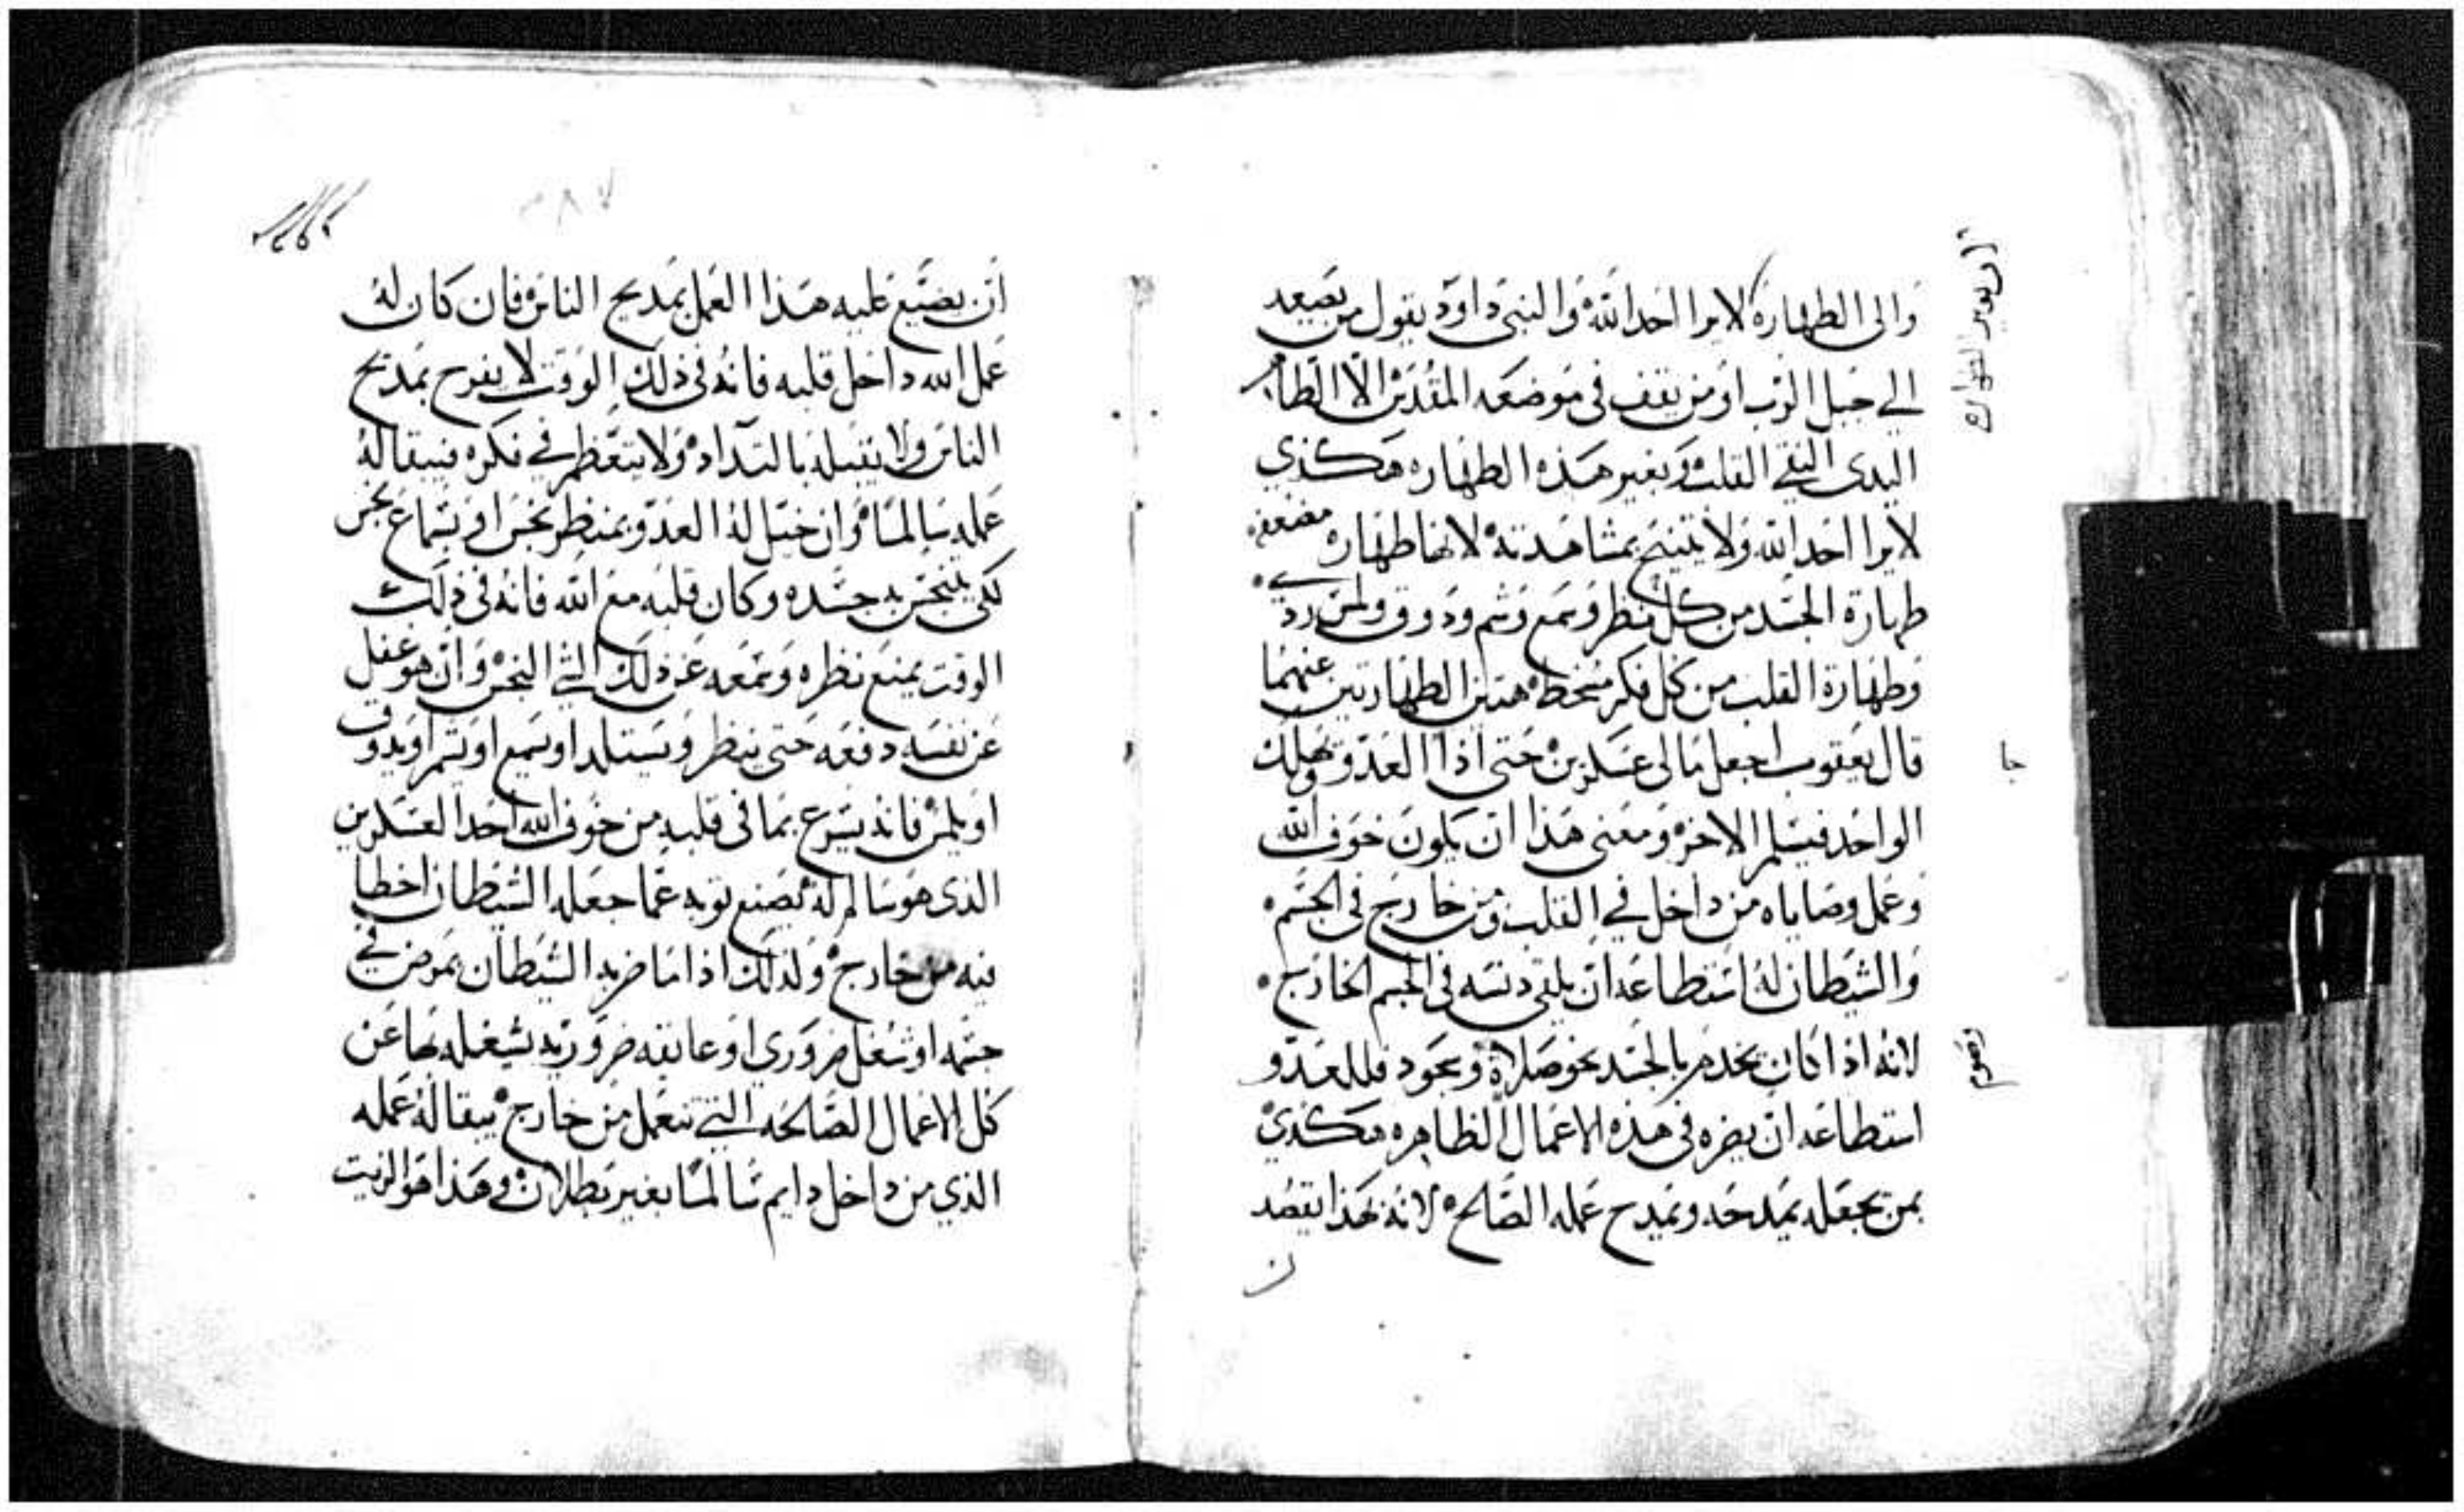 والى الطهارة لا يرا احد الله والنبى داوود يقول من يصعد
الي جبل الرب او من يقف في موضعه المقدس الا الطاهر
اليدى النقي القلب وبغير هذه الطهاره هكذي
لا يرا احد الله ولا يتنيح بمشاهدته لانها طهاره مضعفه
طهارة الجسد من كل نظر وسمع وشم وذوق ولمس ردي
وطهارة القلب من كل فكر مسخط هتين الطهارتين عنهما
قال يعقوب اجعل مالى عسكرين حتى اذا العدو هلك
الواحد فيسلم الاخر ومعنى هذا ان يكون خوف الله
وعمل وصاياه من داخل في القلب ومن خارج في الجسم
والشيطان له استطاعه ان يلقى دنسه في الجسم الخارج
لانه اذا كان يخدم بالجسد نحو صلاة وسجود فللعدو
استطاعه ان يضره في هذه الاعمال الظاهره هكذي
بمن يجعله يمدحه ويمدح عمله الصالح لانه بهذا يقصد
ان يضيع عليه هذا العمل بمديح الناس فان كان له
عمل الله داخل قلبه فانه في ذلك الوقت لا يفرح بمديح
الناس ولا يقبله بالتداد ولا يتعظم في فكره فيبقا له
عمله سالما وان خيل له العدو بمنظر نجس او بسماع نجس
لكى يتنجس به جسده وكان قلبه مع الله فانه في ذلك
الوقت يمنع نظره وسمعه عن ذلك الشي النجس وان هو غفل
عن نفسه دفعه حتى ينظر ويستلد او يسمع او يشم او يدوق
او يلمس فانه يسرع بما في قلبه من خوف الله احد العسكرين
الذى هو سالم له يصنع توبه عما جعله الشيطان اخطا
فيه من خارج ولذلك اذا ما ضربه الشيطان بمرض في
جسمه او شغل ضروري او عايقه ضروريه يشغله بها عن
كل الاعمال الصالحه التي تنعمل من خارج يبقا له عمله
الذي من داخل دايم سالما بغير بطلان وهذا هو الزيت